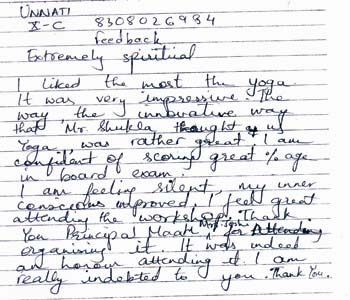 UNNATI
X-C 8308026984
feedback
Extremely spiritual
I liked the most the yoga.
It was very impressive. The
way, the innovative way
that Mr. Shukla thought us
Yoga, was rather great, I am
confident of scoring great %age
in board exam.
I am feeling silent, my inner
conscious improved, I feel great
attending the workshop. Thank
You Principal Maam, for Attending
organising it. It was indeed
an honour attending it. I am
really indebted to you. Thank You.